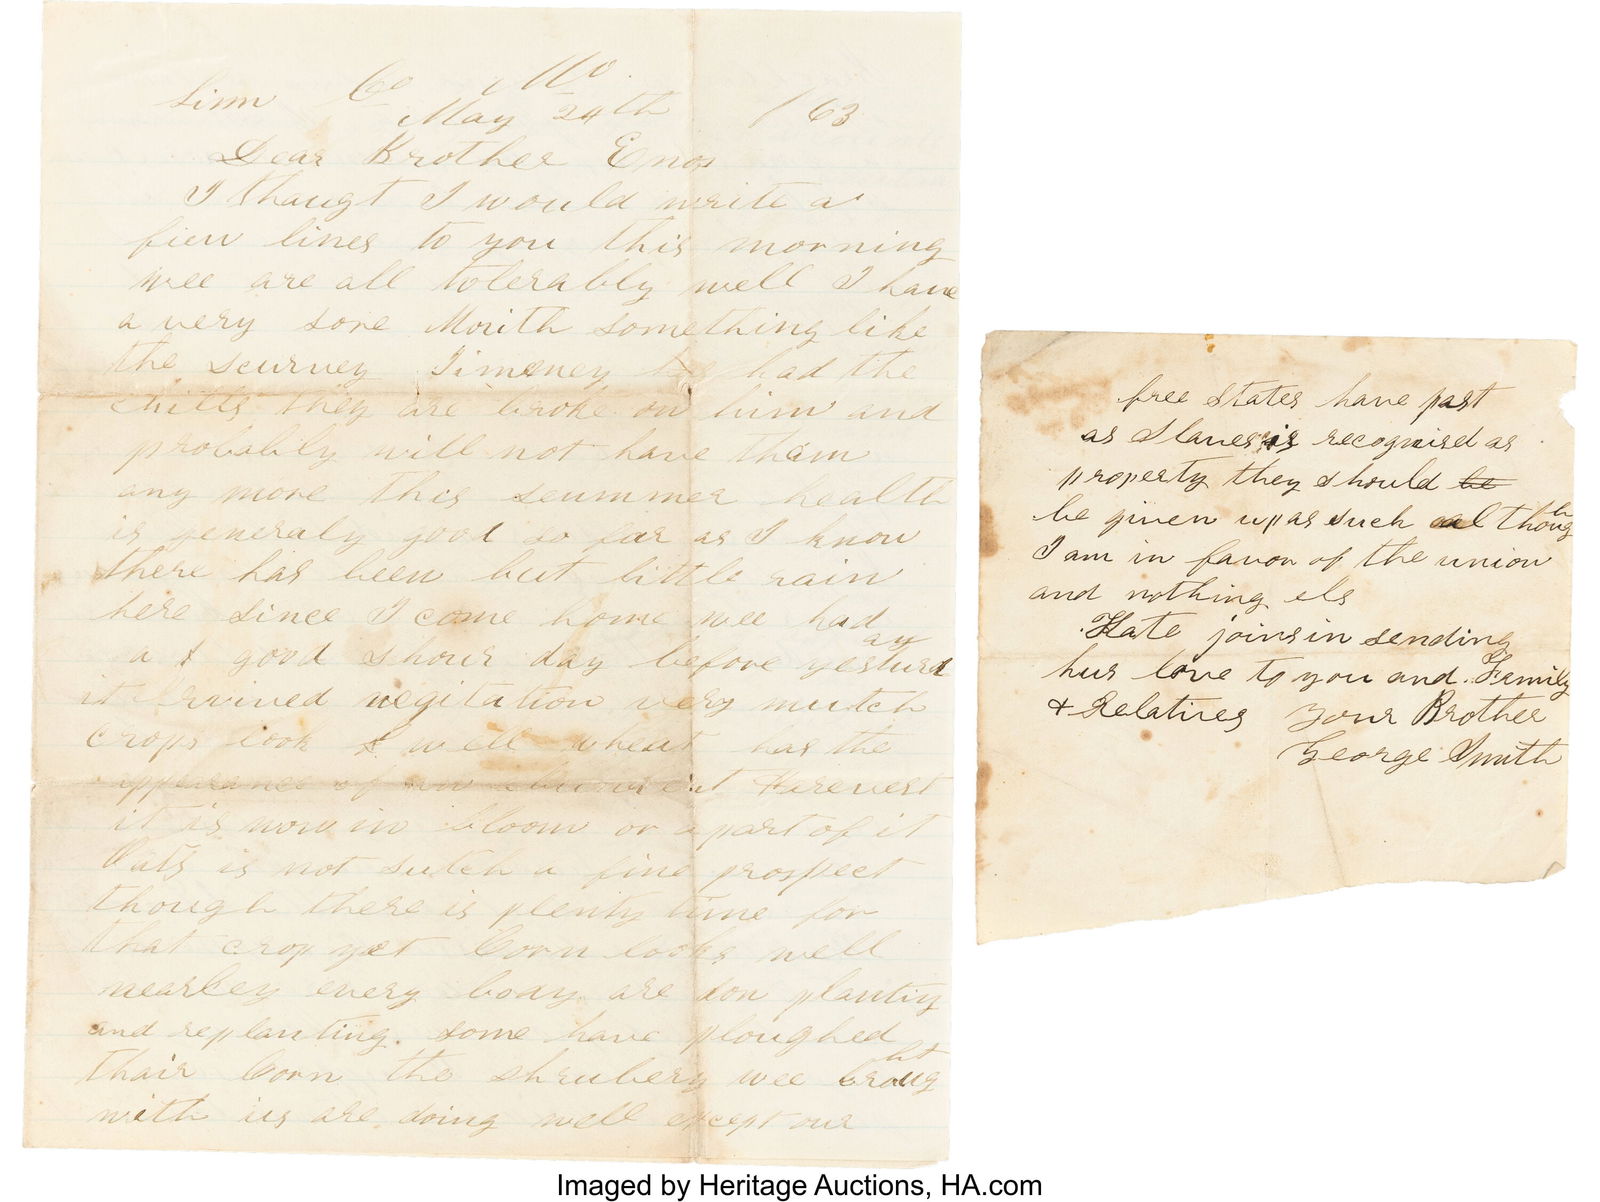 Linn Co Mo
May 24th / 63
Dear Brother Enos
I thaugt I would write a
fiew lines to you this morning
wee are all tolerably well I have
a very sore Mouth something like
the scurvey Timeney he had the
chills they are broke on him and
probably will not have tham
any more this summer health
is generaly good so far as I know
there has been but little rain
here since I come home wee had
a good shour day before yesturday
it rvived vegitation very mutch
crops look well wheat has the
appearance of an Harevest
it is now in bloom or a part of it
Oats is not sutch a fine prospect
though there is plenty time for
that crop yet Corn looks well
nearley every body are don planting
and replanting. some have ploughed
thair Corn the shrubery wee brought
with us are doing well except our
free States have past
as Slaves is recognised as
property they should be
be given up as such although
I am in favor of the union
and nothing els
Kate joins in sending
hur love to you and Family
& Relatives Your Brother
George Smith
Imaged by Heritage Auctions, HA.com